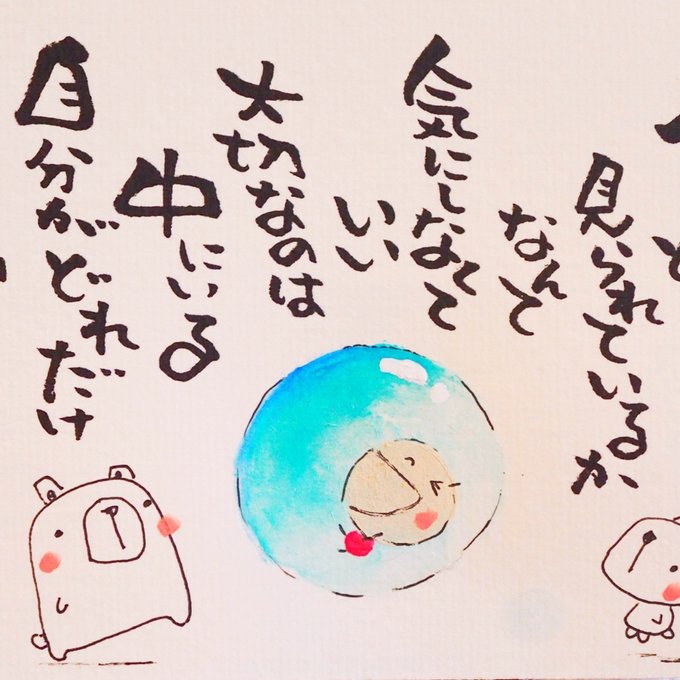 と
見られているか
なんて
気にしなくて
いい
大切なのは
中にいる
自分がどれだけ